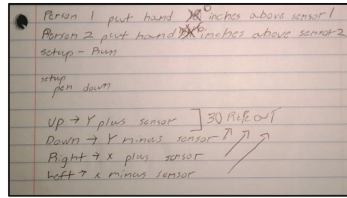 Person 1 put hand 6 inches above sensor 1
Person 2 put hand 6 inches above sensor 2
setup - Run
setup
pen down
Up → Y plus sensor ] 30
Down → Y minus sensor
Right → x plus sensor
Left → x minus sensor